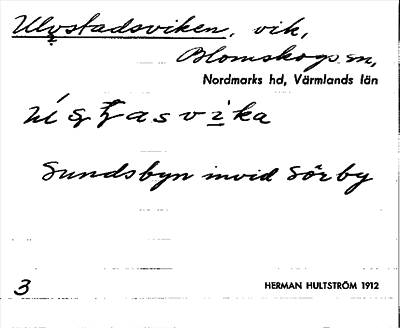 Ulvstadsviken, vik,
Blomskogs sn,
Nordmarks hd, Värmlands län
Sundsbyn invid Sörby
3
HERMAN HULTSTRÖM 1912